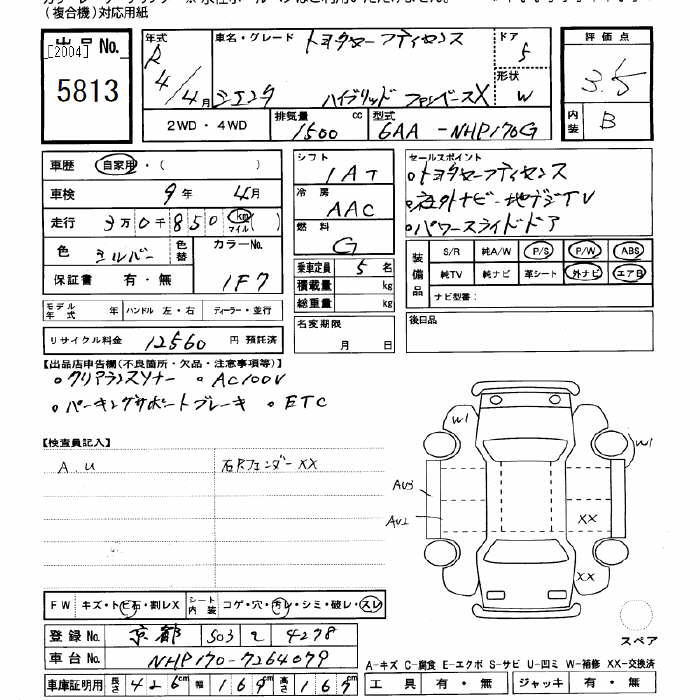 (複合機)対応用紙
出品No. [2004] 5813
年式 R4/4月
車名・グレード トヨタセーフティセンス
シエンタ ハイブリッド ファンベースX
ドア 5
形状 W
評価点 3.5
内装 B
2WD・4WD
排気量 1500 cc
型式 6AA-NHP170G
車歴 自家用・( )
車検 9年 4月
走行 3万0千850 km マイル ( )
色 シルバー 色替 カラーNo. 1F7
保証書 有・無
シフト IAT
冷房 AAC
燃料 G
乗車定員 5名
積載量 kg
総重量 kg
セールスポイント
・トヨタセーフティセンス
・社外ナビ-地デジTV
・パワースライドドア
装備品 S/R 純A/W P/S P/W ABS
純TV 純ナビ 革シート 外ナビ エアB
ナビ型番:
モデル年式 年 ハンドル 左・右 ディーラー・並行
リサイクル料金 12560 円 預託済
名変期限 月 日
後日品
【出品店申告欄(不良箇所・欠品・注意事項等)】
・クリアランスソナー ・AC100V
・パーキングサポートブレーキ ・ETC
【検査員記入】
A.U
右Rフェンダー XX
W1
W1
AU3
AU2
XX
XX
FW キズ・トビ石・割レX シート内装 コゲ・穴・汚レ・シミ・破レ・スレ
登録No. 京都 503 4278
車台No. NHP170-7264079
車庫証明用 長さ 426cm 幅 169cm 高さ 167cm
スペア
A-キズ C-腐食 E-エクボ S-サビ U-凹ミ W-補修 XX-交換済
工具 有・無 ジャッキ 有・無